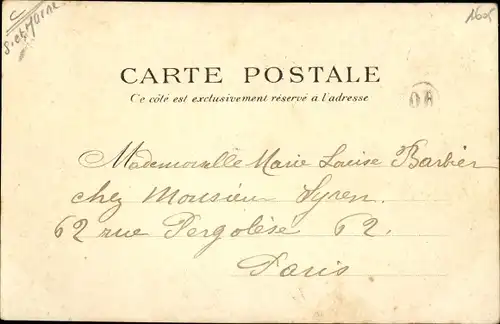 S. et Marne
CARTE POSTALE
Ce côté est exclusivement réservé a l'adresse
OR
Mademoiselle Marie Louise Barbier
chez Monsieur Syren.
62 rue Pergolèse 62.
Paris